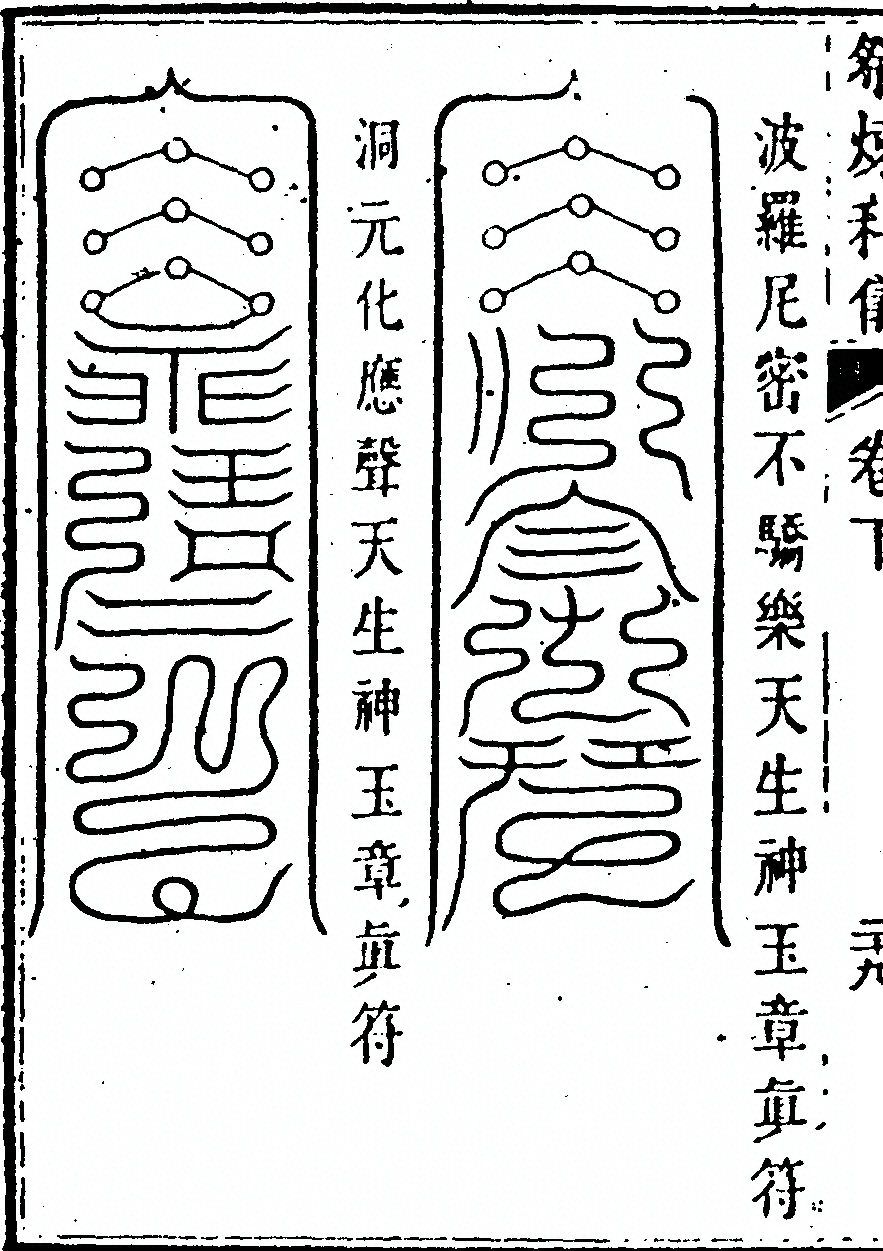 煉科儀 卷下
波羅尼密不驕樂天生神玉章眞符
洞元化應聲天生神玉章眞符